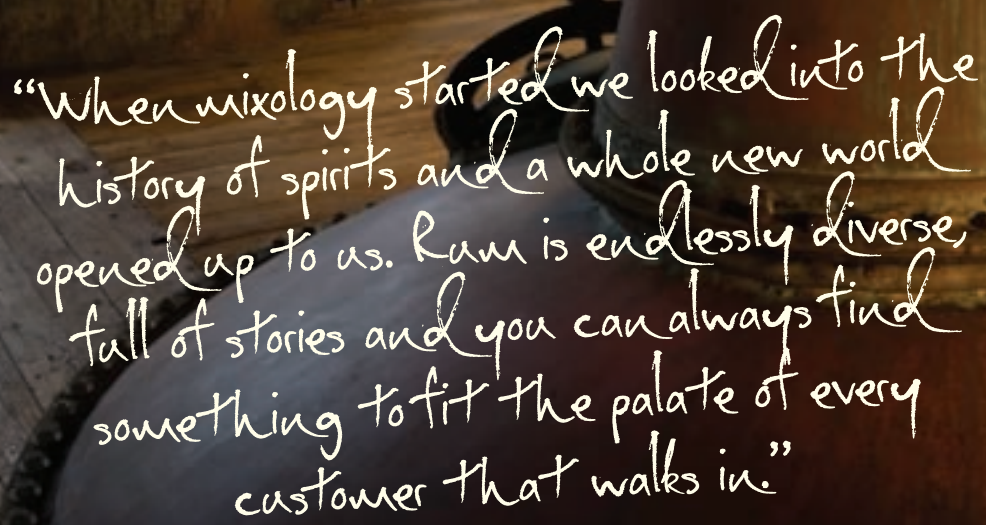 “When mixology started we looked into the
history of spirits and a whole new world
opened up to us. Rum is endlessly diverse,
full of stories and you can always find
something to fit the palate of every
customer that walks in.”